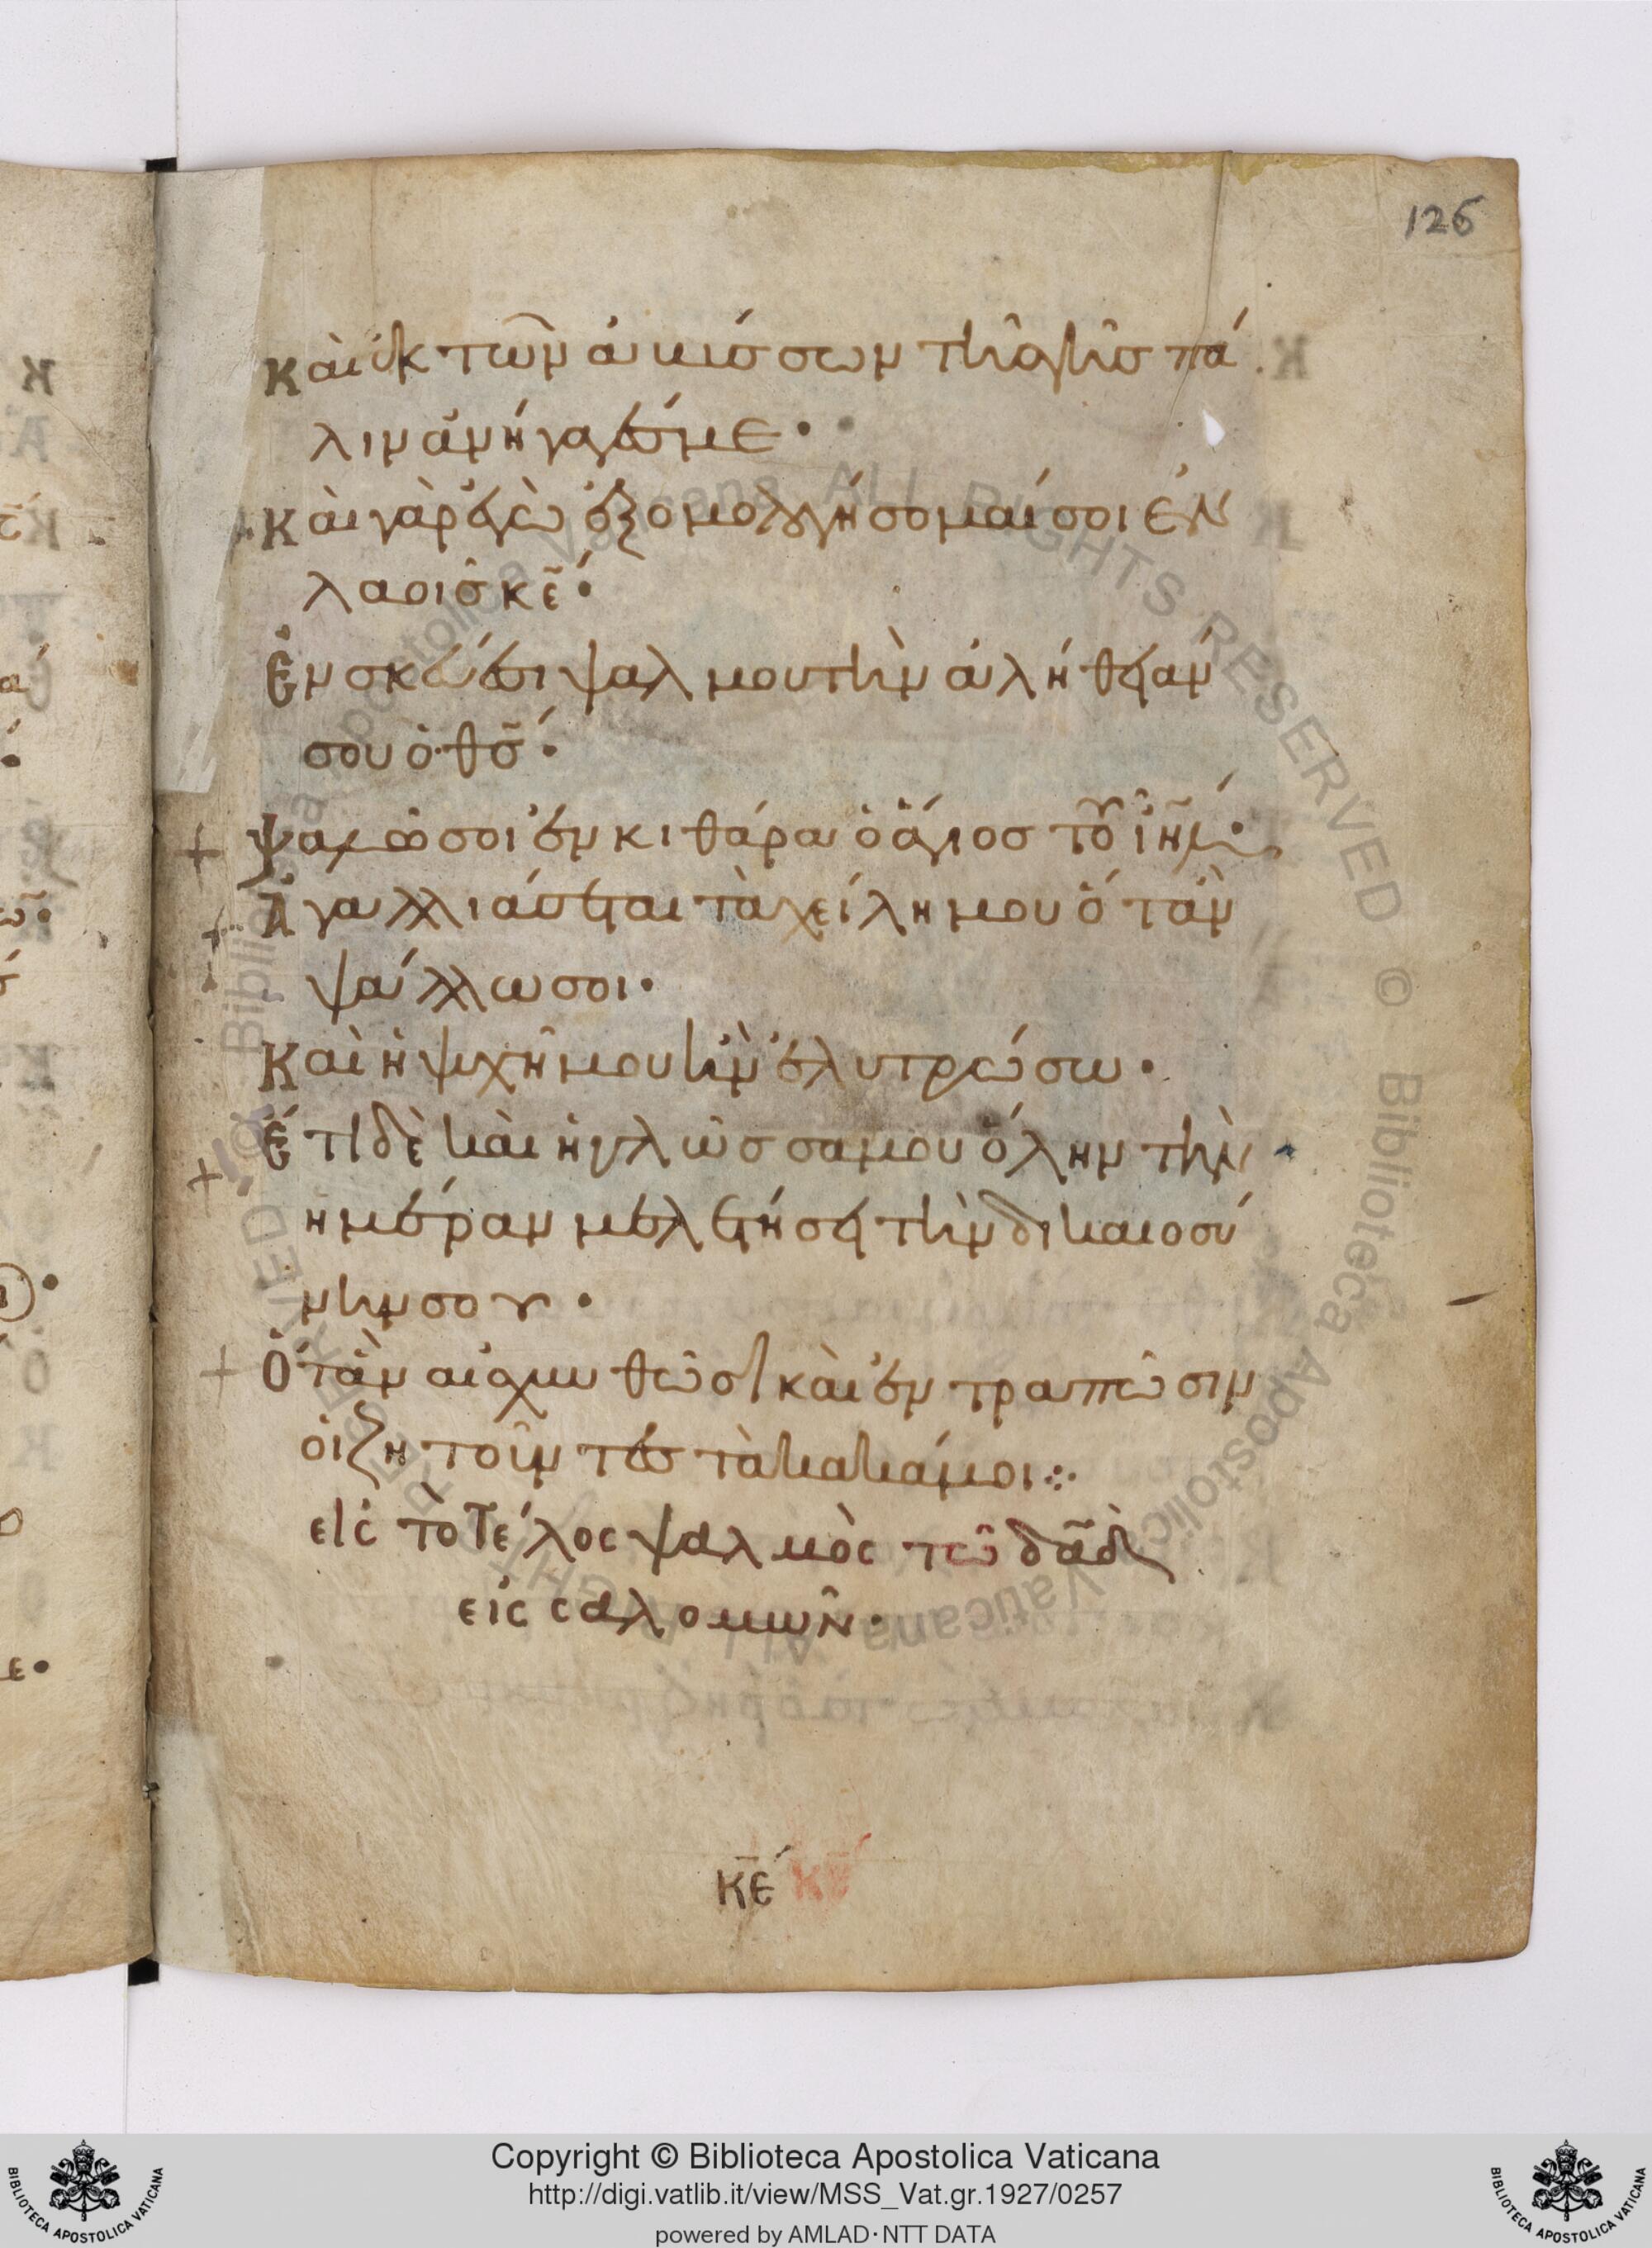 126
καὶ ἐκ τῶν ἀβύσσων τῆς γῆς πά
λιν ἀνήγαγές με·
Καὶ γὰρ ἐγὼ ἐξομολογήσομαί σοι ἐν
λαοῖς κ̅ε̅·
Ἐν σκεύεσι ψαλμοῦ τὴν ἀλήθειαν
σου ὁ θ̅ς̅·
Ψαλῶ σοι ἐν κιθάρα ὁ ἅγιος τοῦ ἰ̅η̅λ̅·
Ἀγαλλιάσεται τὰ χείλη μου ὅταν
ψάλλω σοι·
Καὶ ἡ ψυχή μου ἣν ἐλυτρώσω·
Ἔτι δὲ καὶ ἡ γλῶσσα μου ὅλην τὴν
ημέραν μελετήσει τὴν δικαιοσύ
νην σου·
Ὅταν αἰσχυνθῶσι καὶ ἐντραπῶσιν
οἱ ζητοῦντες τὰ κακά μοι:·
εἰς τὸ τέλος ψαλμὸς τῶ δ̅α̅δ̅
εἰς σαλομῶν·
κ̅ε̅ κ̅ε̅
Copyright © Biblioteca Apostolica Vaticana
http://digi.vatlib.it/view/MSS_Vat.gr.1927/0257
powered by AMLAD·NTT DATA
BIBLIOTECA APOSTOLICA VATICANA
BIBLIOTECA APOSTOLICA VATICANA
Biblioteca Apostolica Vaticana ALL RIGHTS RESERVED © Biblioteca Apostolica Vaticana ALL RIGHTS RESERVED ©